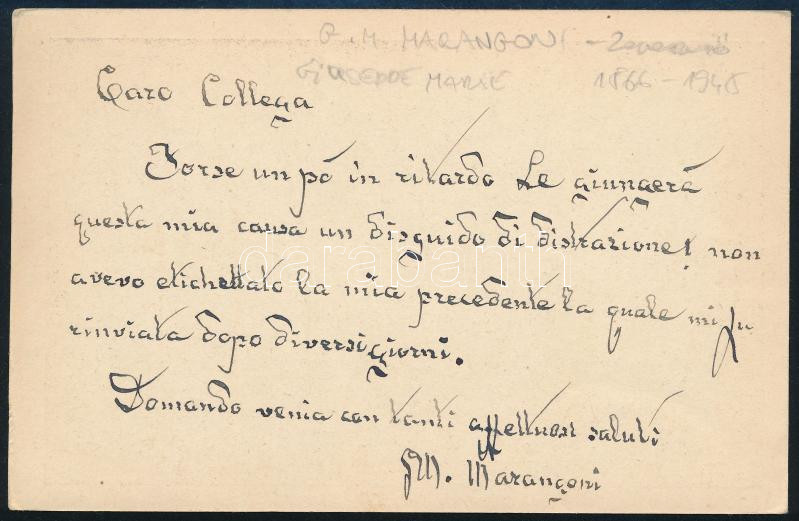 G. M. MARANGONI -
GIUSEPPE MARIE 1866 - 1948
Caro Collega
Forse un pó in ritardo Le giungerá
questa mia causa un disguido di distrazione! non
avevo etichettato la mia precedente la quale mi fu
rinviata dopo diversi giorni.
Domando venia con tanti affettuosi saluti
GM. Marangoni
darabanth